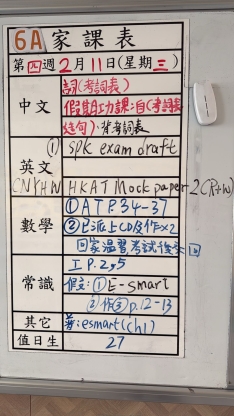 6A 家課表
第四週2月11日(星期三)
中文
詞(考詞表)
假期功課:自(考詞表
造句)、背考詞表
英文
① Spk exam draft
CNYHW HKAT Mock paper 2(R+W)
數學
①AT P.34-37
②已派上CD及作×2
回家溫習,考試後交回
常識
工P.2,5
假文:①E-smart
②作③p.12-13
其它
普:esmart(ch1)
值日生
27